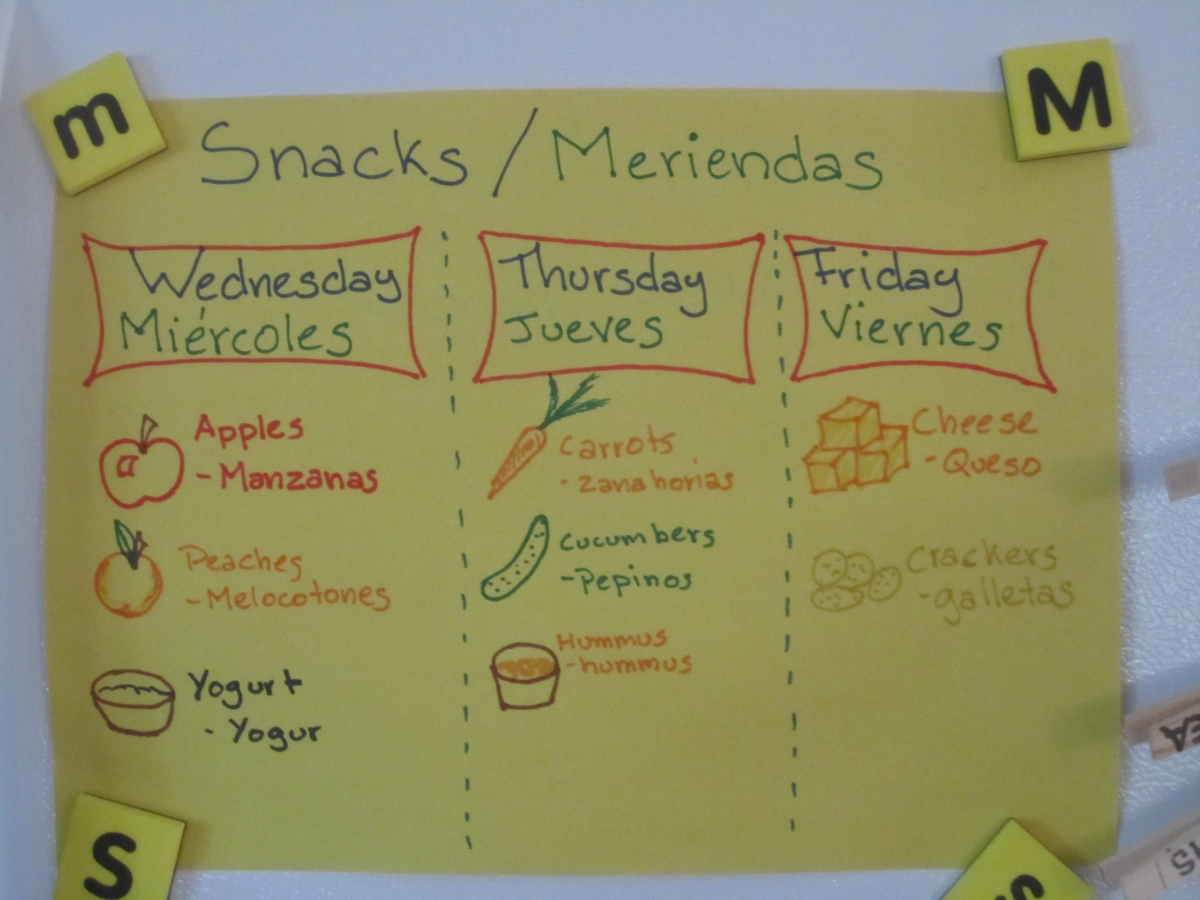 m
M
Snacks / Meriendas
Wednesday
Miércoles
Apples
- Manzanas
Peaches
- Melocotones
Yogurt
- Yogur
Thursday
Jueves
Carrots
- Zanahorias
Cucumbers
- Pepinos
Hummus
- hummus
Friday
Viernes
Cheese
- Queso
Crackers
- galletas
S
S